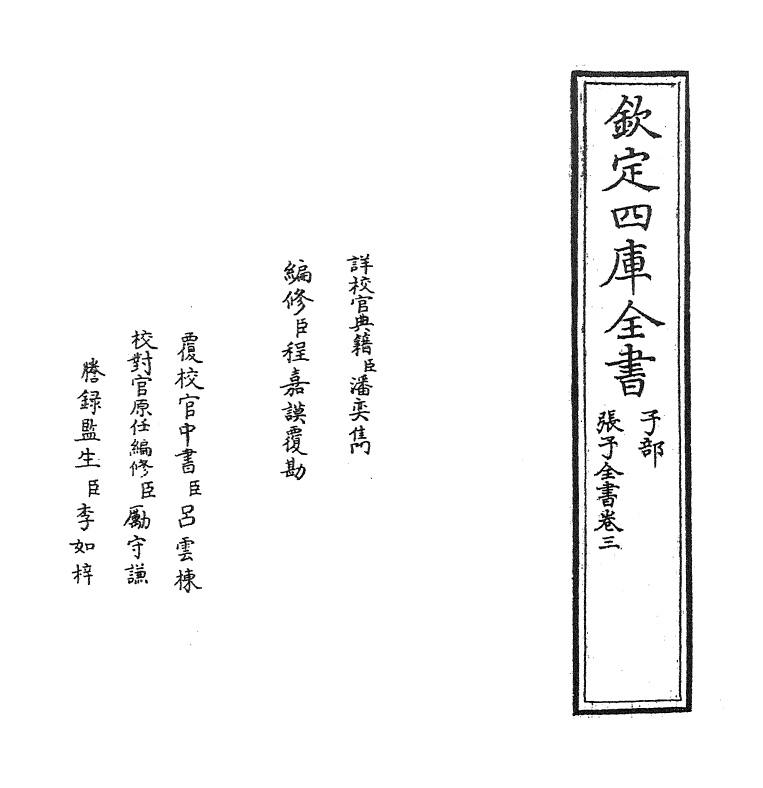 欽定四庫全書
子部
張子全書卷三
詳校官典籍臣潘奕雋
編修臣程嘉謨覆勘
覆校官中書臣呂雲棟
校對官原任編修臣勵守謙
謄録監生臣李如梓